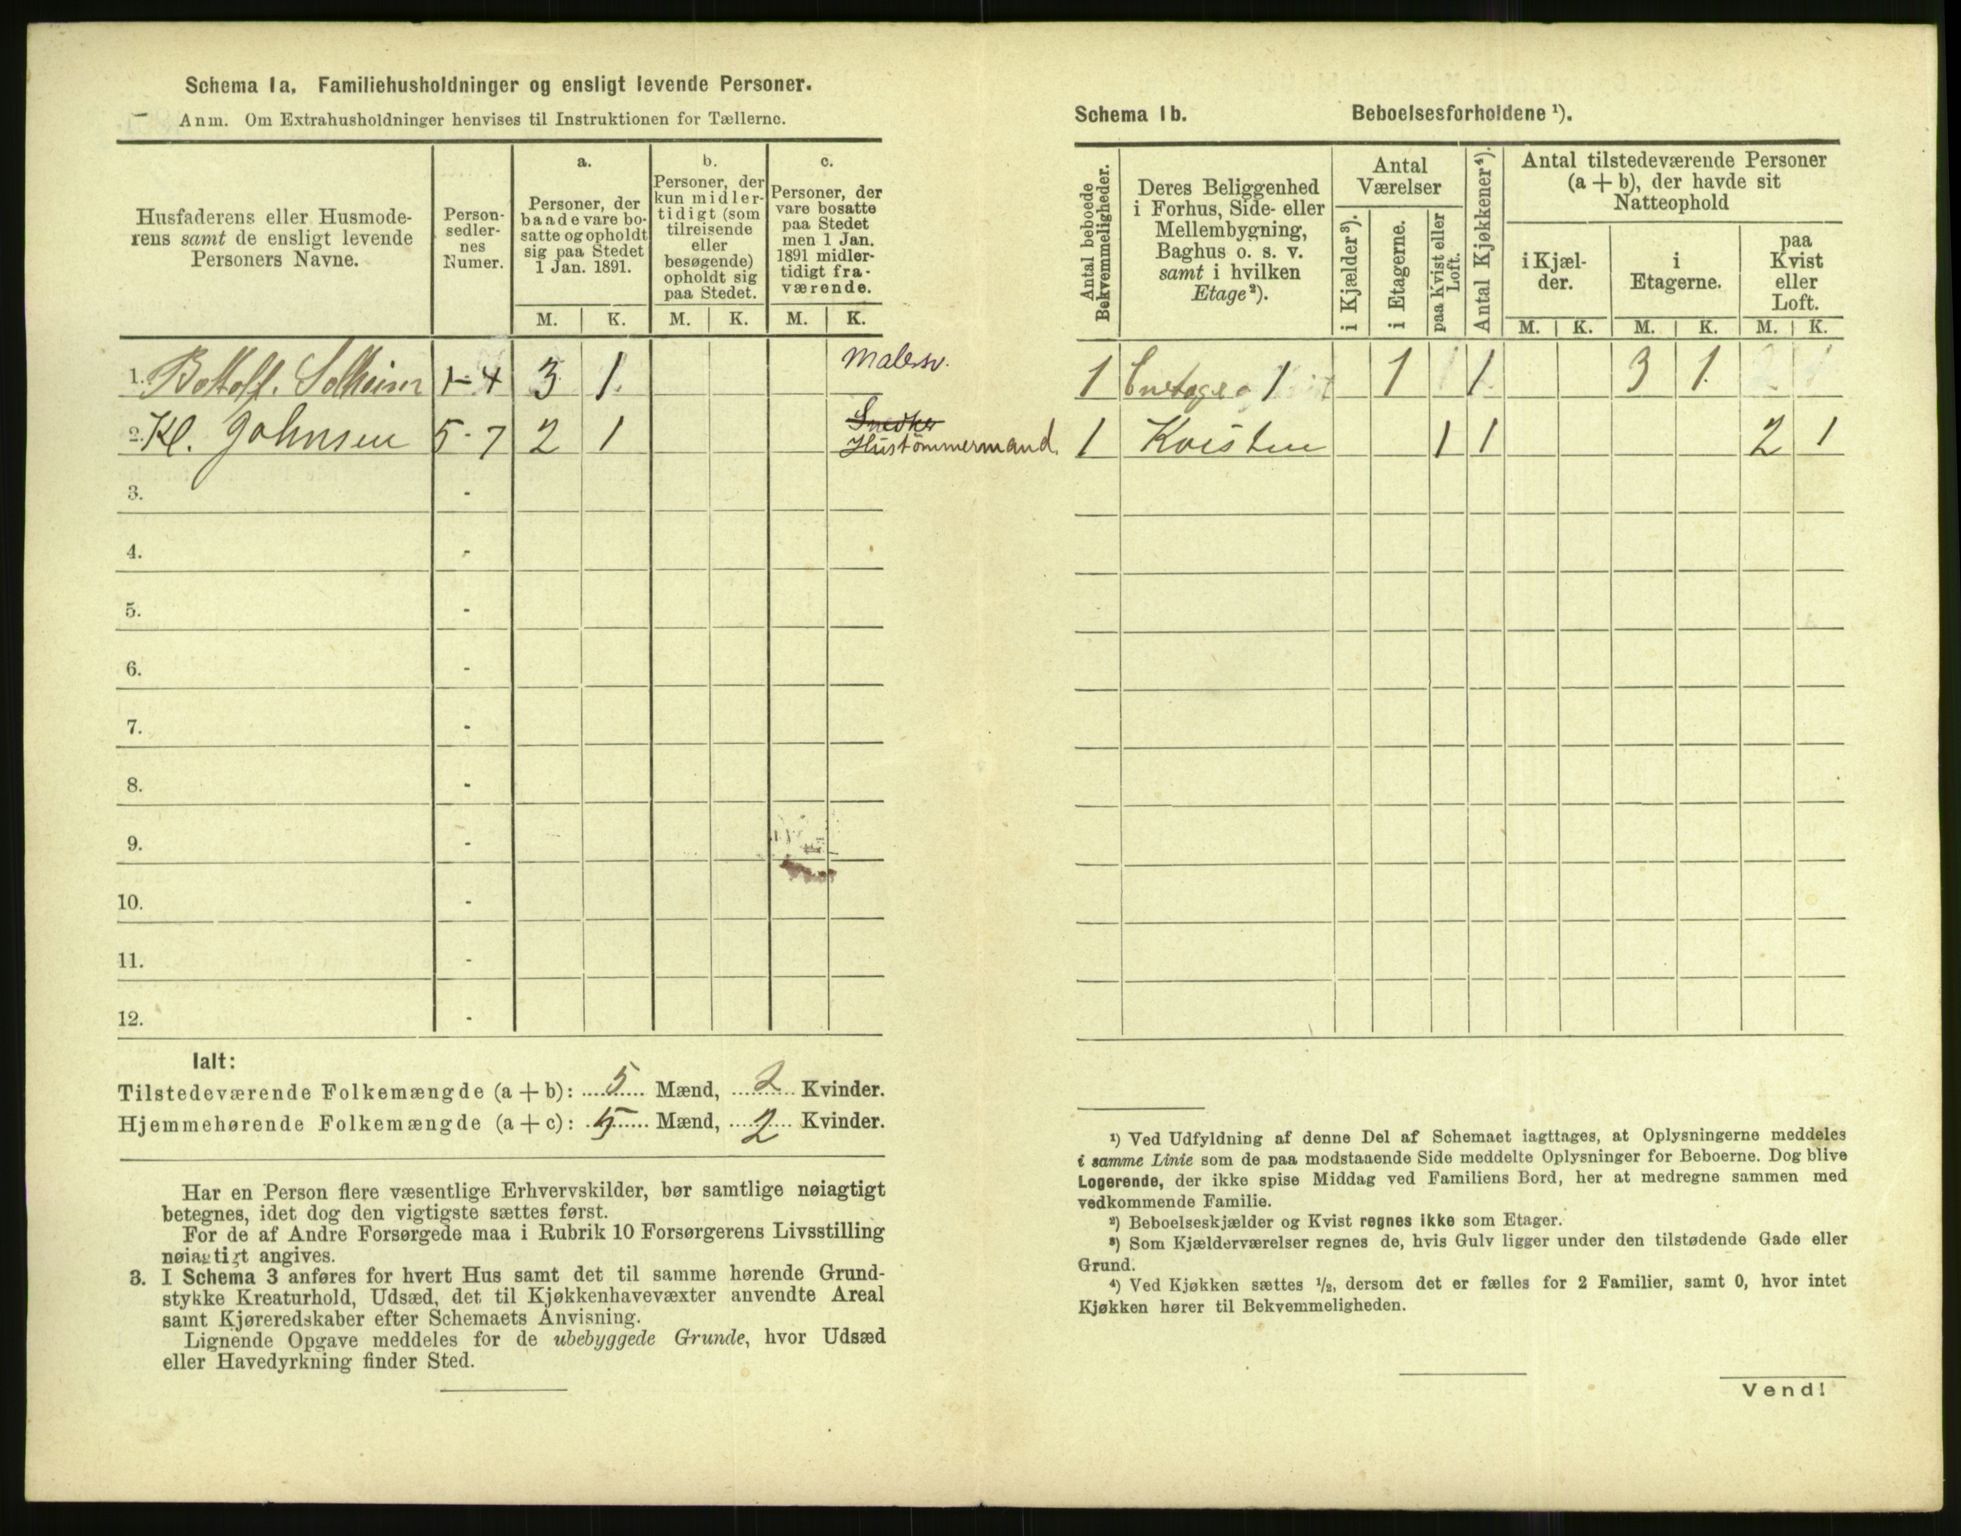 Schema 1a. Familiehusholdninger og ensligt levende Personer.
Anm. Om Extrahusholdninger henvises til Instruktionen for Tællerne.
Husfaderens eller Husmode-
rens samt de ensligt levende
Personers Navne.
Person-
sedler-
nes
Numer.
a.
Personer, der
baade vare bo-
satte og opholdt
sig paa Stedet
1 Jan. 1891.
b.
Personer, der
kun midler-
tidigt (som
tilreisende
eller
besøgende)
opholdt sig
paa Stedet.
c.
Personer, der
vare bosatte
paa Stedet
men 1 Jan.
1891 midler-
tidigt fra-
værende.
M. K. M. K. M. K.
1. Solheim 1-4 3 1 Malersv.
2. Kl. Johnsen 5-7 2 1 Snedker
Hustømmermand.
3. -
4. -
5. -
6. -
7. -
8. -
9. -
10. -
11. -
12. -
Ialt:
Tilstedeværende Folkemængde (a + b): 5 Mænd, 2 Kvinder.
Hjemmehørende Folkemængde (a + c): 5 Mænd, 2 Kvinder.
Har en Person flere væsentlige Erhvervskilder, bør samtlige nøiagtigt
betegnes, idet dog den vigtigste sættes først.
For de af Andre Forsørgede maa i Rubrik 10 Forsørgerens Livsstilling
nøiagtigt angives.
3. I Schema 3 anføres for hvert Hus samt det til samme hørende Grund-
stykke Kreaturhold, Udsæd, det til Kjøkkenhavevæxter anvendte Areal
samt Kjøreredskaber efter Schemaets Anvisning.
Lignende Opgave meddeles for de ubebyggede Grunde, hvor Udsæd
eller Havedyrkning finder Sted.
Schema 1b. Beboelsesforholdene ¹).
Antal beboede
Bekvemmeligheder.
Deres Beliggenhed
i Forhus, Side- eller
Mellembygning,
Baghus o. s. v.
samt i hvilken
Etage²).
Antal
Værelser
i Kjælder³).
i Etagerne.
paa Kvist eller
Loft.
Antal Kjøkkener⁴).
Antal tilstedeværende Personer
(a + b), der havde sit
Natteophold
i Kjæl-
der.
i
Etagerne.
paa
Kvist
eller
Loft.
M. K. M. K. M. K.
1 1 1 1 3 1
1 Kvisten 1 1 2 1
¹) Ved Udfyldning af denne Del af Schemaet iagttages, at Oplysningerne meddeles
i samme Linie som de paa modstaaende Side meddelte Oplysninger for Beboerne. Dog blive
Logerende, der ikke spise Middag ved Familiens Bord, her at medregne sammen med
vedkommende Familie.
²) Beboelseskjælder og Kvist regnes ikke som Etager.
³) Som Kjælderværelser regnes de, hvis Gulv ligger under den tilstødende Gade eller
Grund.
⁴) Ved Kjøkken sættes ½, dersom det er fælles for 2 Familier, samt 0, hvor intet
Kjøkken hører til Bekvemmeligheden.
Vend!